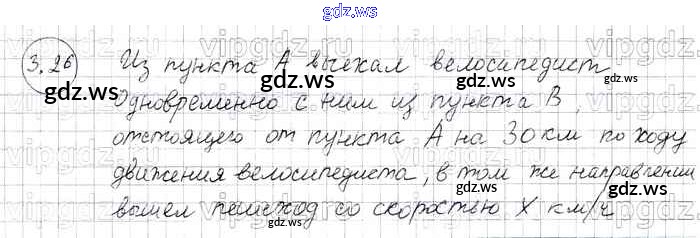 gdz.ws
3.26 Из пункта А выехал велосипедист
gdz.ws gdz.ws gdz.ws
Одновременно с ним из пункта В,
отстоящего от пункта А на 30 км по ходу
движения велосипедиста, в том же направлении
gdz.ws gdz.ws gdz.ws
вышел пешеход со скоростью х км/ч